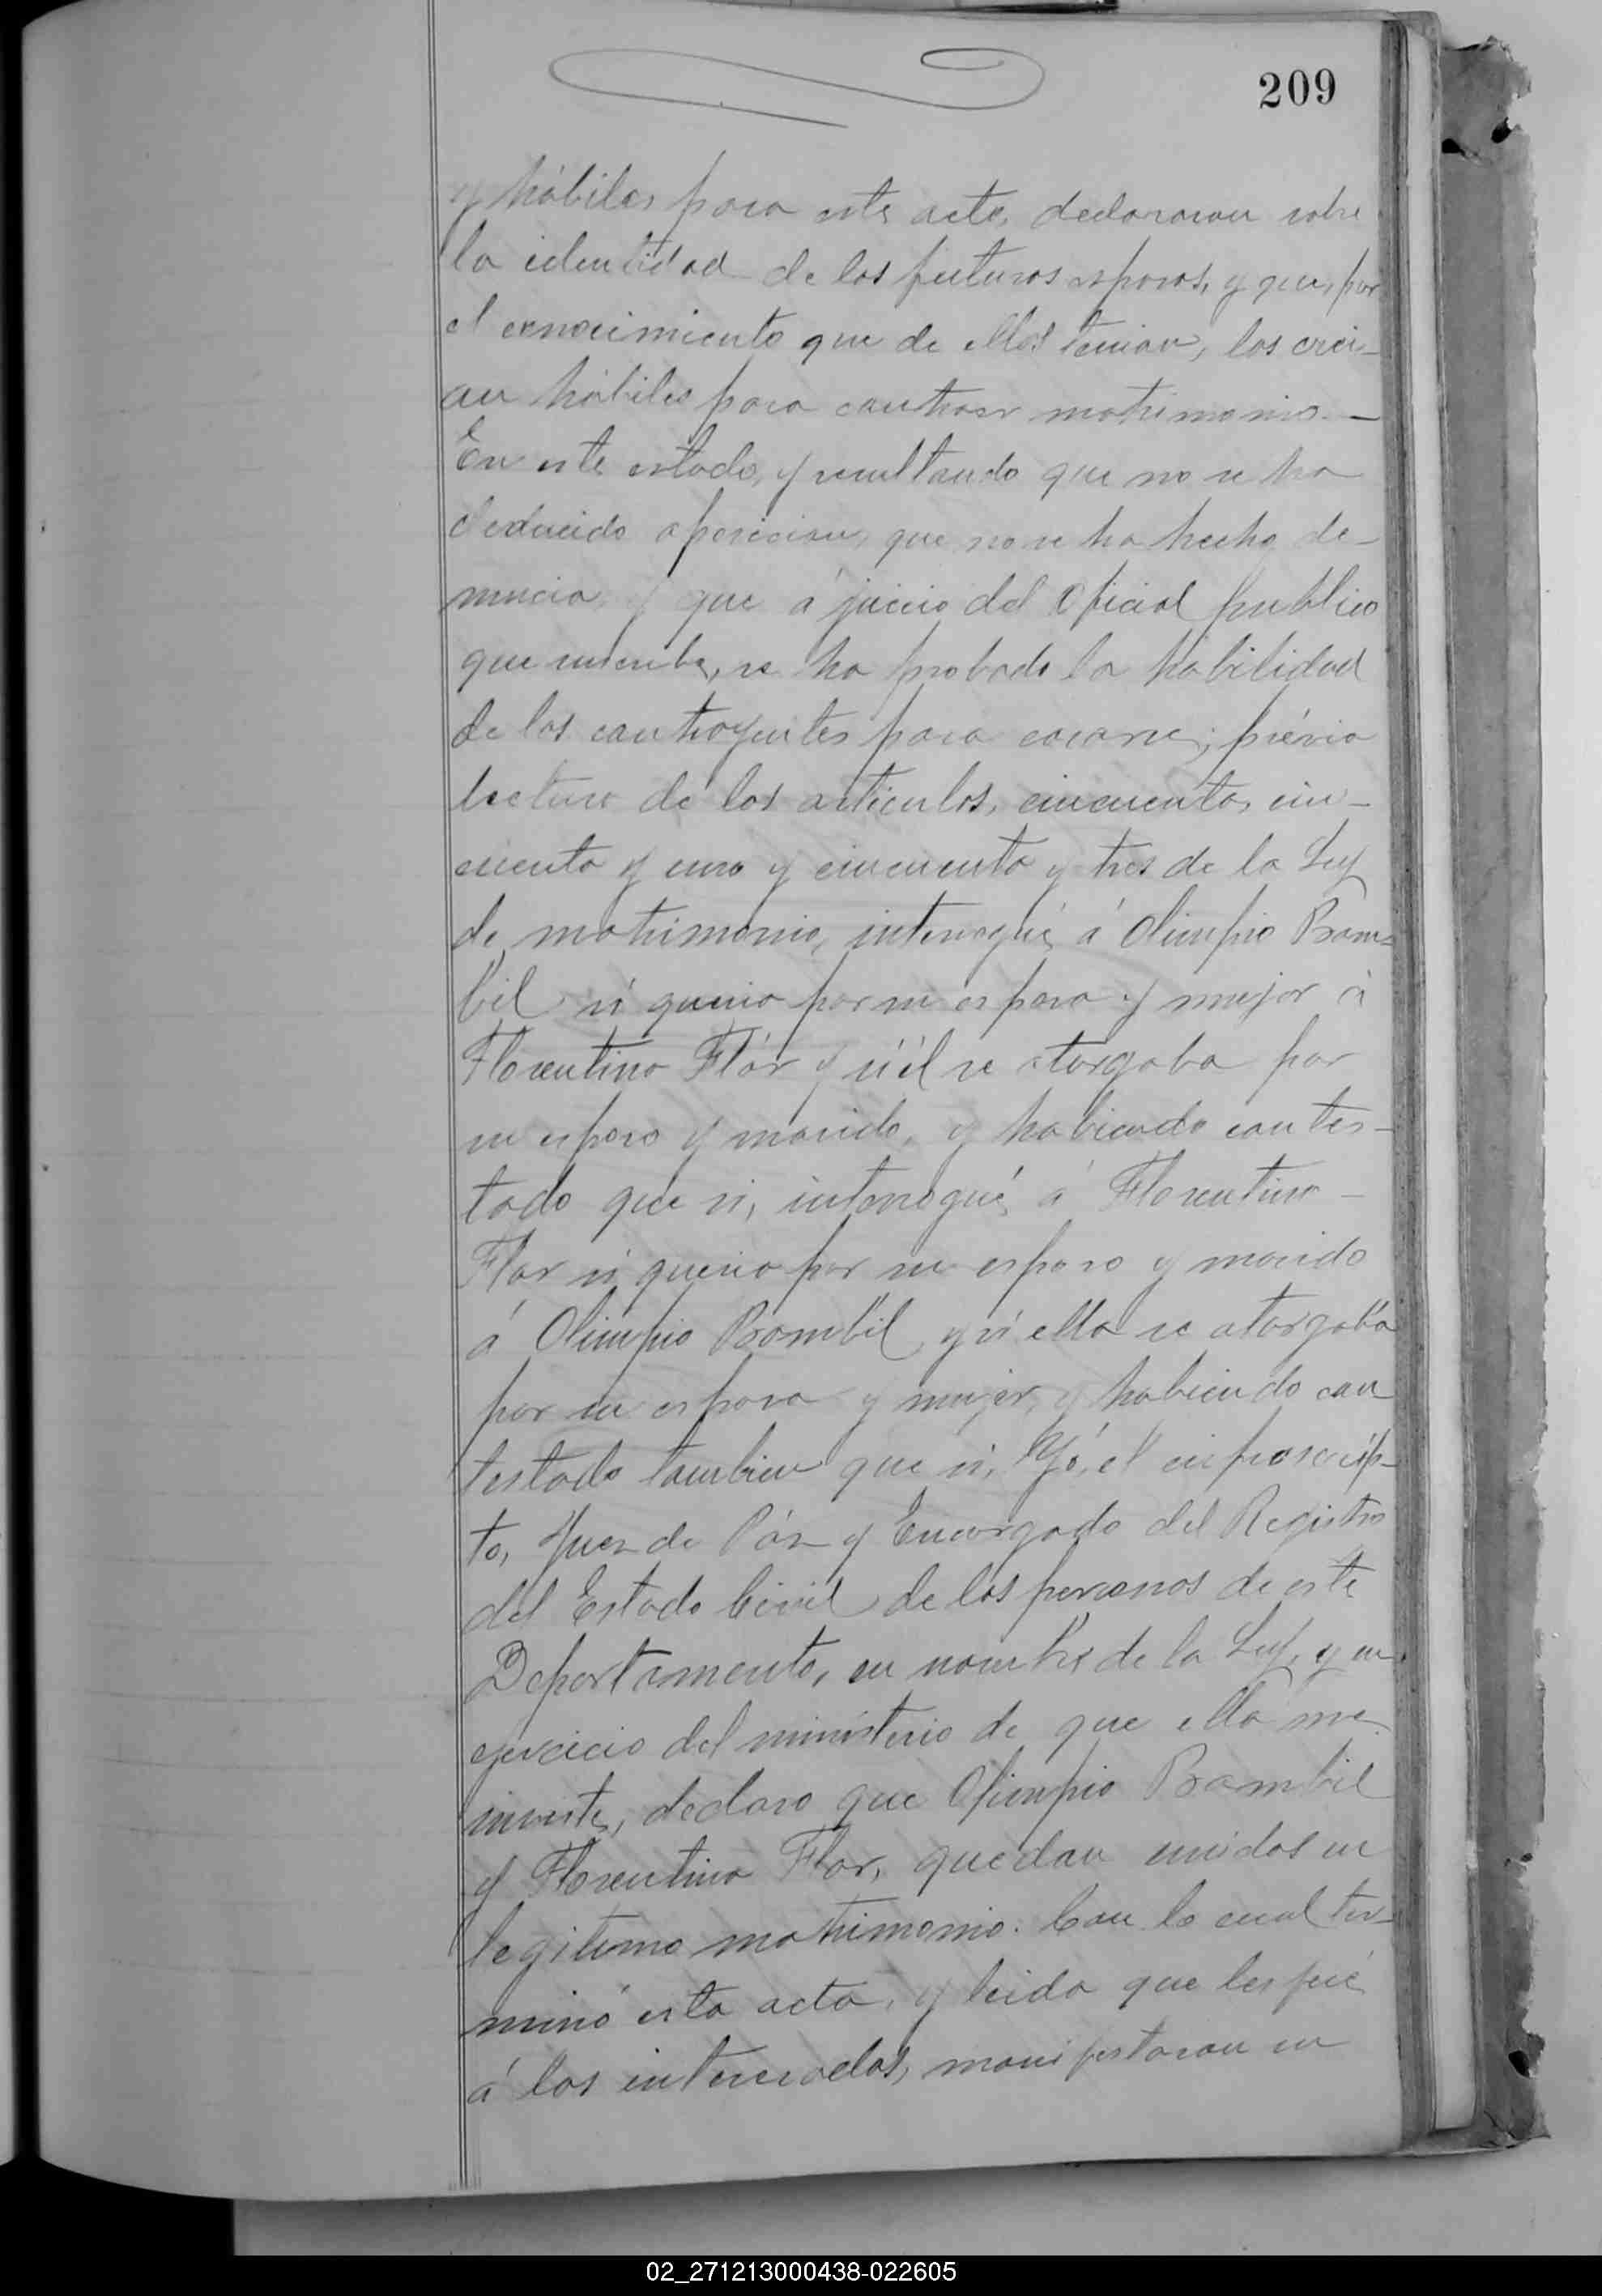 209
y hábiles para este acto, declararon sobre
la identidad de los futuros esposos, y que, por
el conocimiento que de ellos tenian, los crei-
an hábiles para contraer matrimonio.—
En este estado, y resultando que no se ha
deducido oposicion, que no se ha hecho de-
nuncia, y que á juicio del Oficial publico
que suscribe, se ha probado la habilidad
de los contrayentes para casarse; prévia
lectura de los artículos, cincuenta, cin-
cuenta y uno y cincuenta y tres de la Ley
de matrimonio, interrogué á Olimpio Bam-
bil si queria por su esposa y mujer á
Florentina Flór y si él se otorgaba por
su esposo y marido, y habiendo contes-
tado que si, interrogué á Florentina —
Flor si queria por su esposo y marido
á Olimpio Bambil y si ella se otorgaba
por su esposa y mujer, y habiendo con
testado tambien que si, Yó, el infrascrip-
to, Juez de Páz y Encargado del Registro
del Estado Civil de las personas de este
Departamento, en nombre de la Ley, y en
ejercicio del ministerio de que ella me
inviste, declaro que Olimpio Bambil
y Florentina Flor, quedan unidos en
legitimo matrimonio. Con lo cual ter-
minó esta acta, y leida que les fué
á los interesados, manifestaron su
02_271213000438-022605